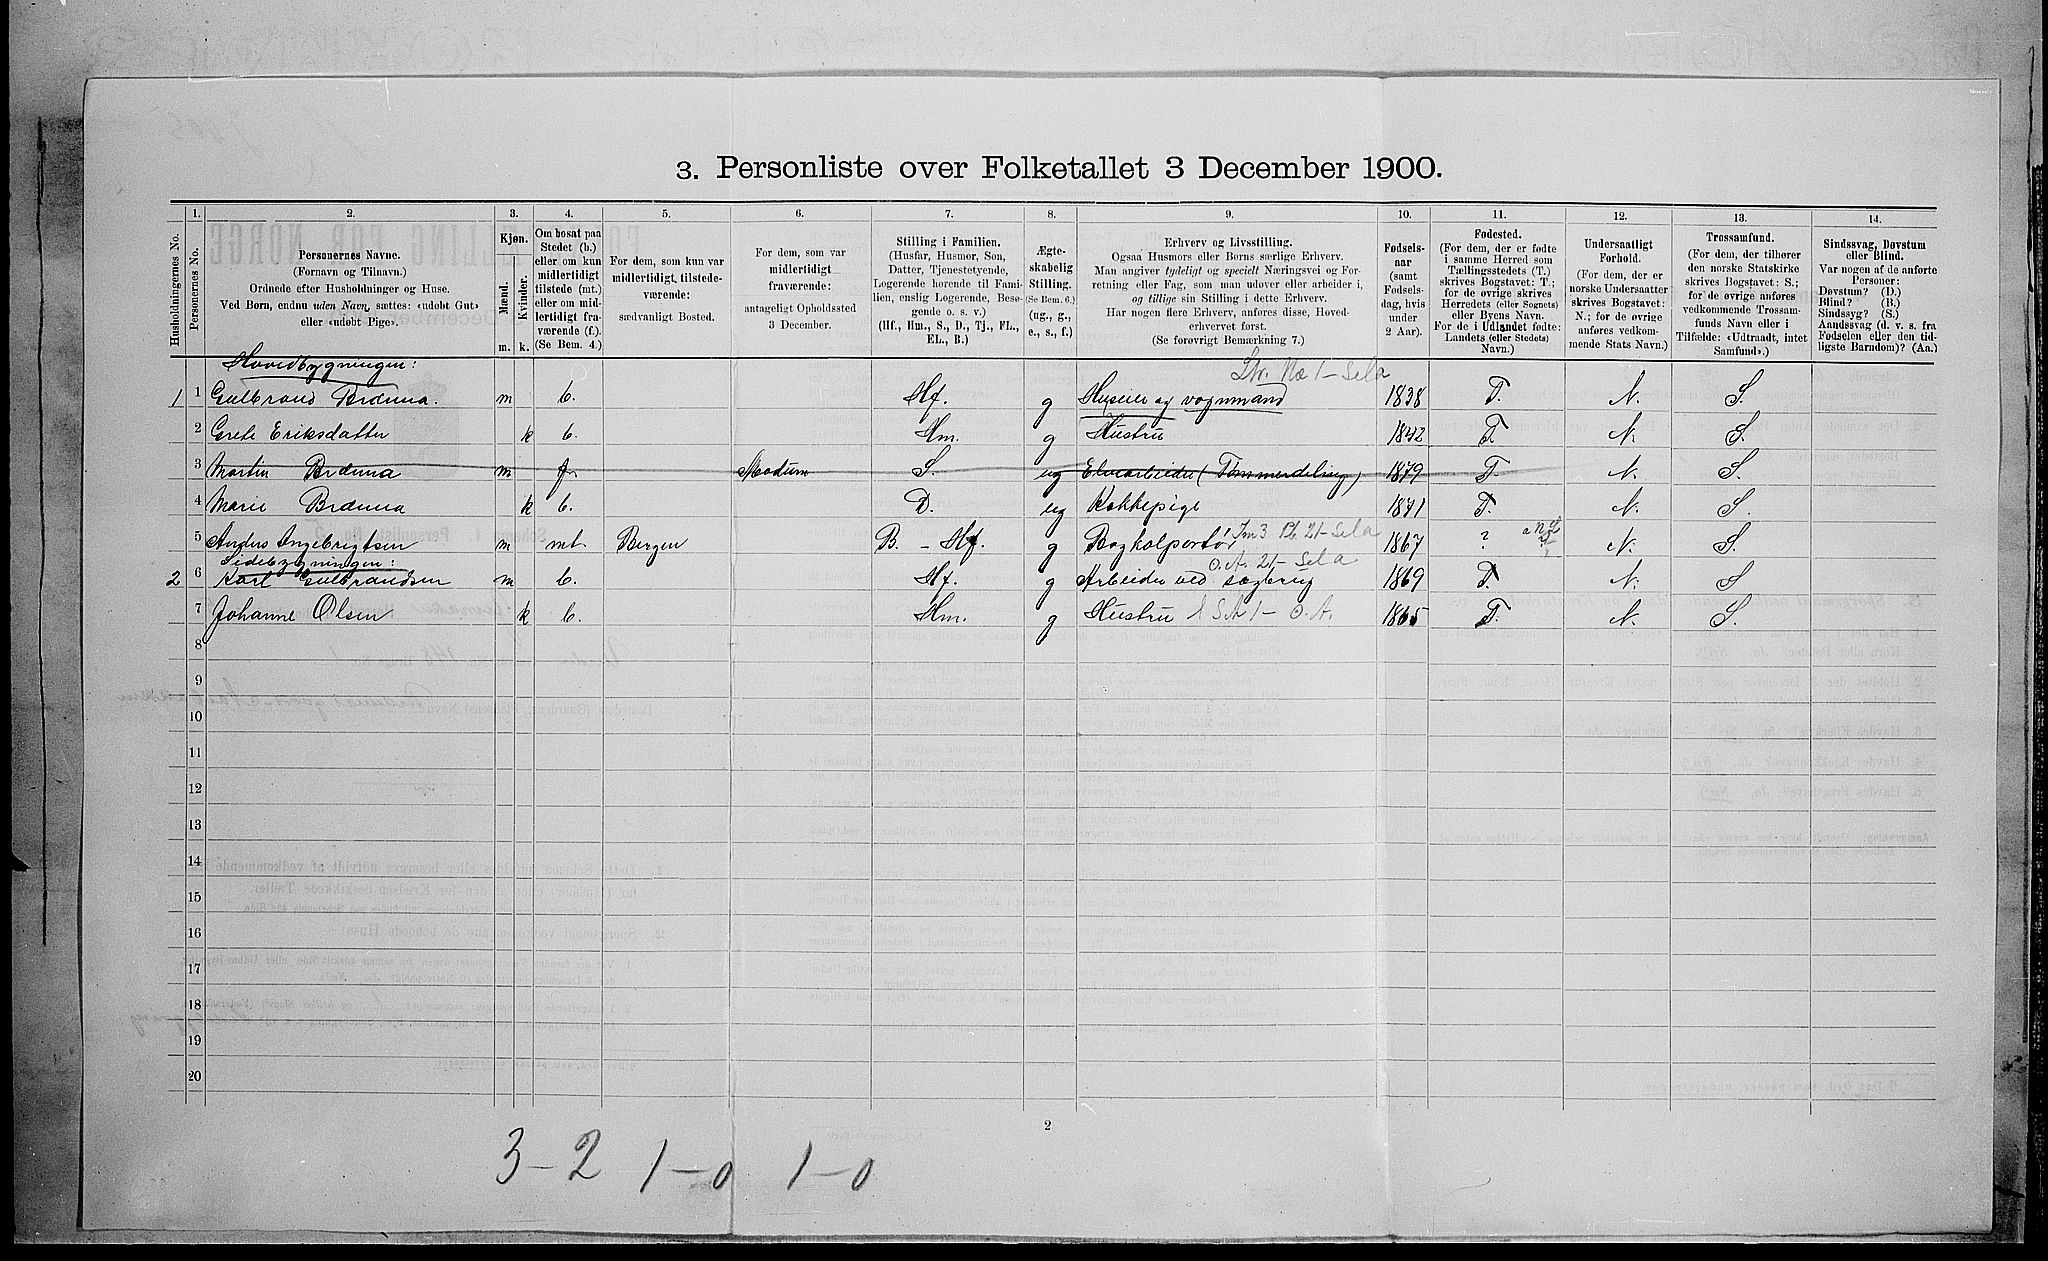 3. Personliste over Folketallet 3 December 1900.
Husholdningernes No.
1.
Personernes No.
2.
Personernes Navne.
(Fornavn og Tilnavn.)
Ordnede efter Husholdninger og Huse.
Ved Børn, endnu uden Navn, sættes: «udøbt Gut»
eller «udøbt Pige».
3.
Kjøn.
Mænd.
Kvinder.
m. k.
4.
Om bosat paa
Stedet (b.)
eller om kun
midlertidigt
tilstede (mt.)
eller om mid-
lertidigt fra-
værende (f.).
(Se Bem. 4.)
5.
For dem, som kun var
midlertidigt tilstede-
værende:
sædvanligt Bosted.
6.
For dem, som var
midlertidigt
fraværende:
antageligt Opholdssted
3 December.
7.
Stilling i Familien.
(Husfar, Husmor, Søn,
Datter, Tjenestetyende,
Logerende hørende til Fami-
lien, enslig Logerende, Besø-
gende o. s. v.)
(Hf., Hm., S., D., Tj., FL.,
EL., B.)
8.
Ægte-
skabelig
Stilling.
(Se Bem. 6.)
(ug., g.,
e., s., f.)
9.
Erhverv og Livsstilling.
Ogsaa Husmors eller Børns særlige Erhverv.
Man angiver tydeligt og specielt Næringsvei og For-
retning eller Fag, som man udover eller arbeider i,
og tillige sin Stilling i dette Erhverv.
Har nogen flere Erhverv, anføres disse, Hoved-
erhvervet først.
(Se forøvrigt Bemærkning 7.)
10.
Fødsels-
aar
(samt
Fødsels-
dag, hvis
under
2 Aar).
11.
Fødested.
(For dem, der er fødte
i samme Herred som
Tællingsstedets (T.)
skrives Bogstavet: T.;
for de øvrige skrives
Herredets (eller Sognets)
eller Byens Navn.
For de i Udlandet fødte:
Landets (eller Stedets)
Navn.)
12.
Undersaatligt
Forhold.
(For dem, der er
norske Undersaatter
skrives Bogstavet:
N.; for de øvrige
anføres vedkom-
mende Stats Navn.)
13.
Trossamfund.
(For dem, der tilhører
den norske Statskirke
skrives Bogstavet: S.;
for de øvrige anføres
vedkommende Trossam-
funds Navn eller i
Tilfælde: «Udtraadt, intet
Samfund».)
14.
Sindssvag, Døvstum
eller Blind.
Var nogen af de anførte
Personer:
Døvstum? (D.)
Blind? (B.)
Sindssyg? (S.)
Aandssvag (d. v. s. fra
Fødselen eller den tid-
ligste Barndom)? (Aa.)
Hovedbygningen:
1 1 Gulbrand Brdnna. m b. Hf. g Huseier og vognmand 1838 T. N. S.
2 Grete Eriksdatter k b. Hm. g Hustru 1842 T. N. S.
3 Martin Brdnna m f. Modum S. ug Elvearbeider (Tømmerdeling) 1879 T N. S.
4 Marie Brdnna k b. D. ug Kokkepige 1871 T. N. S.
5 Anders Ingebrigtsen m mt. Bergen B. - Hf. g Bogkolportør 1867 ? N. S.
Sidebygningen:
2 6 Karl Gulbrandsen m b. Hf. g Arbeider ved sagbrug 1869 T. N. S
7 Johanne Olsen k b. Hm. g Hustru 1865 T. N. S.
8
9
10
11
12
13
14
15
16
17
18
19
20
2
3-2 1-0 1-0